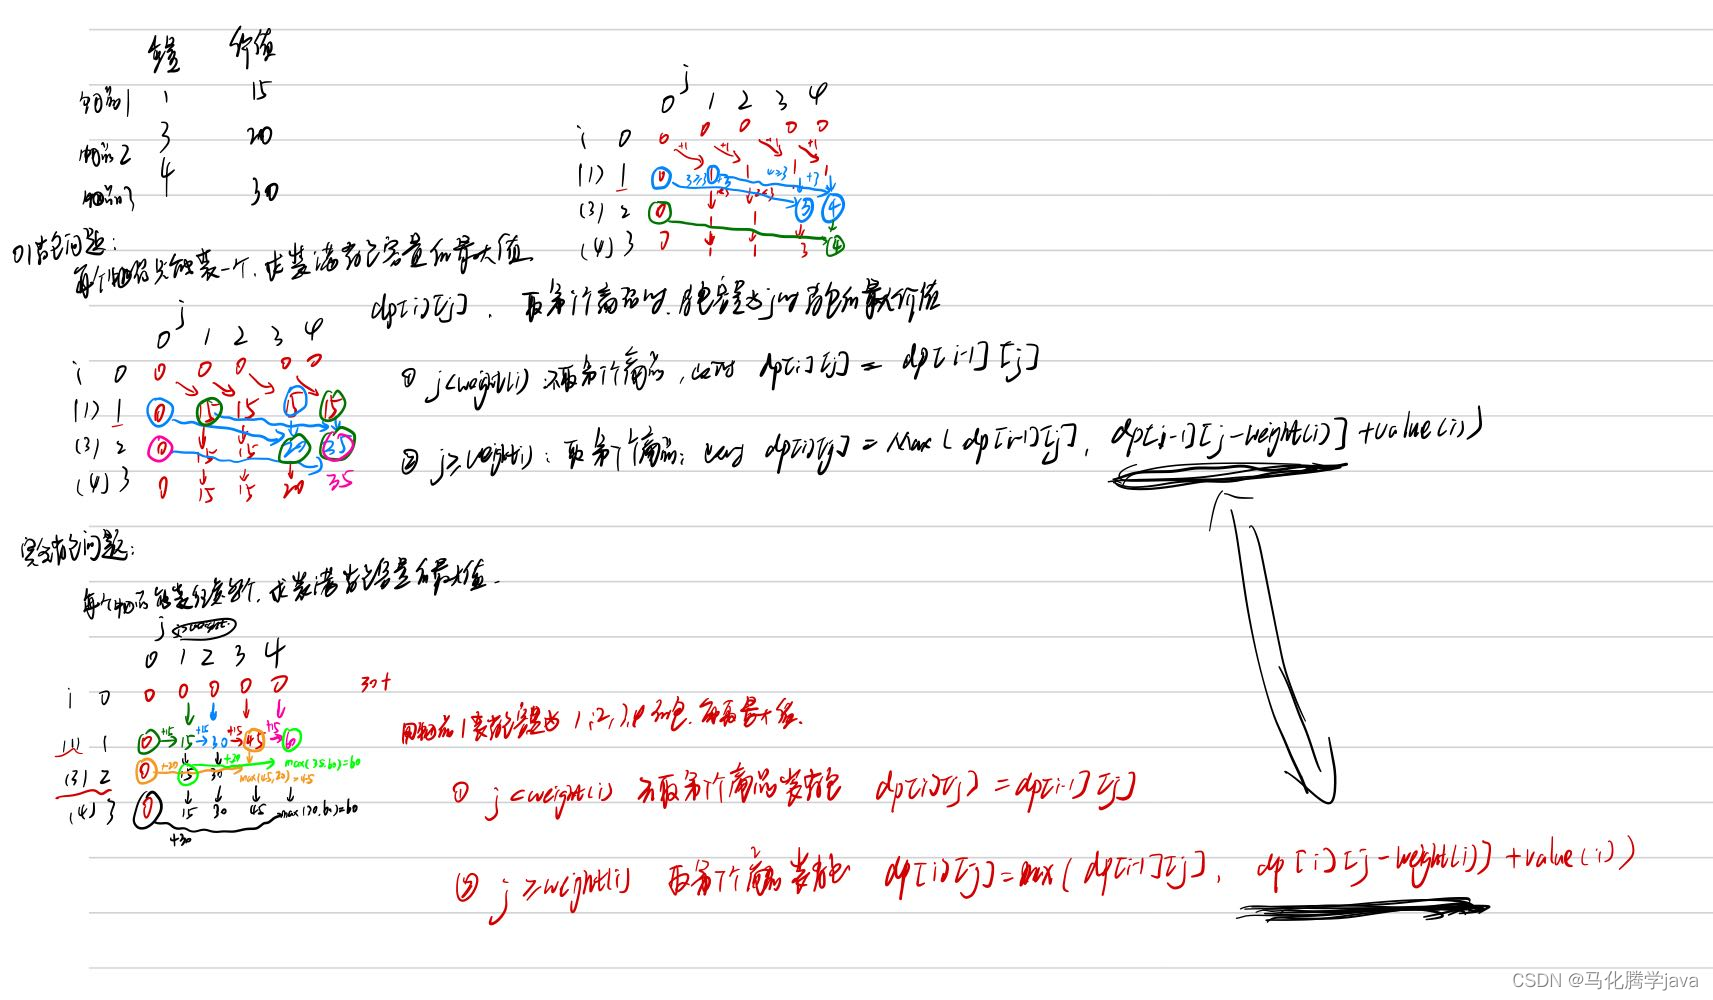 重量 价值
物品1 1 15
物品2 3 20
物品3 4 30
j
0 1 2 3 4
i 0 0 0 0 0 0
+1 +1 +1 +1
(1) 1 0 1 1 1 1
3≥3 +3 4≥3 +3
<3 2<3
(3) 2 0 1 1 3 4
(4) 3 0 1 1 3 4
01背包问题:
每个物品只能装一个,求装满背包容量的最大值.
dp[i][j]. 取第i个商品时,背包容量为j时背包的最大价值
j
0 1 2 3 4
i 0 0 0 0 0 0
(1) 1 0 15 15 15 15
(3) 2 0 15 15 20 35
(4) 3 0 15 15 20 35
① j<weight(i) 不取第i个商品, 此时 dp[i][j] = dp[i-1][j]
② j≥weight(i): 取第i个商品: 此时 dp[i][j] = Max(dp[i-1][j], dp[i-1][j-weight(i)]+value(i))
完全背包问题:
每个物品能装任意多个,求装满背包容量的最大值.
j j≥weight
0 1 2 3 4
i 0 0 0 0 0 0 30+
+15 +15 +15 +15
(1) 1 0 15 30 45 60
+20 +20 max(35,60)=60
(3) 2 0 15 30 max(45,20)=45
(4) 3 0 15 30 45 max(30,60)=60
+30
用物品1装背包容量为1,2,3,4的包,每再最大值.
① j<weight(i) 不取第i个商品装背包 dp[i][j]=dp[i-1][j]
② j≥weight(i) 取第i个商品装背包 dp[i][j]=max(dp[i-1][j], dp[i][j-weight(i)]+value(i))
CSDN @马化腾学java